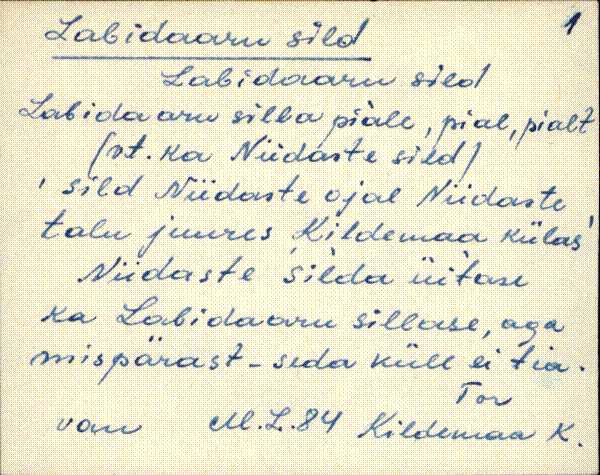 Labidaaru sild 1
Labidaaru sild
Labidaaru silla piale, pial, pialt
(vt. ka Niidaste sild)
' sild Niidaste ojal Niidaste
talu juures, Kildemaa külas'
Niidaste silda üitase
ka Labidaaru sillase, aga
mispärast - seda küll ei tia.
Tor
van M.L.84 Kildemaa K.